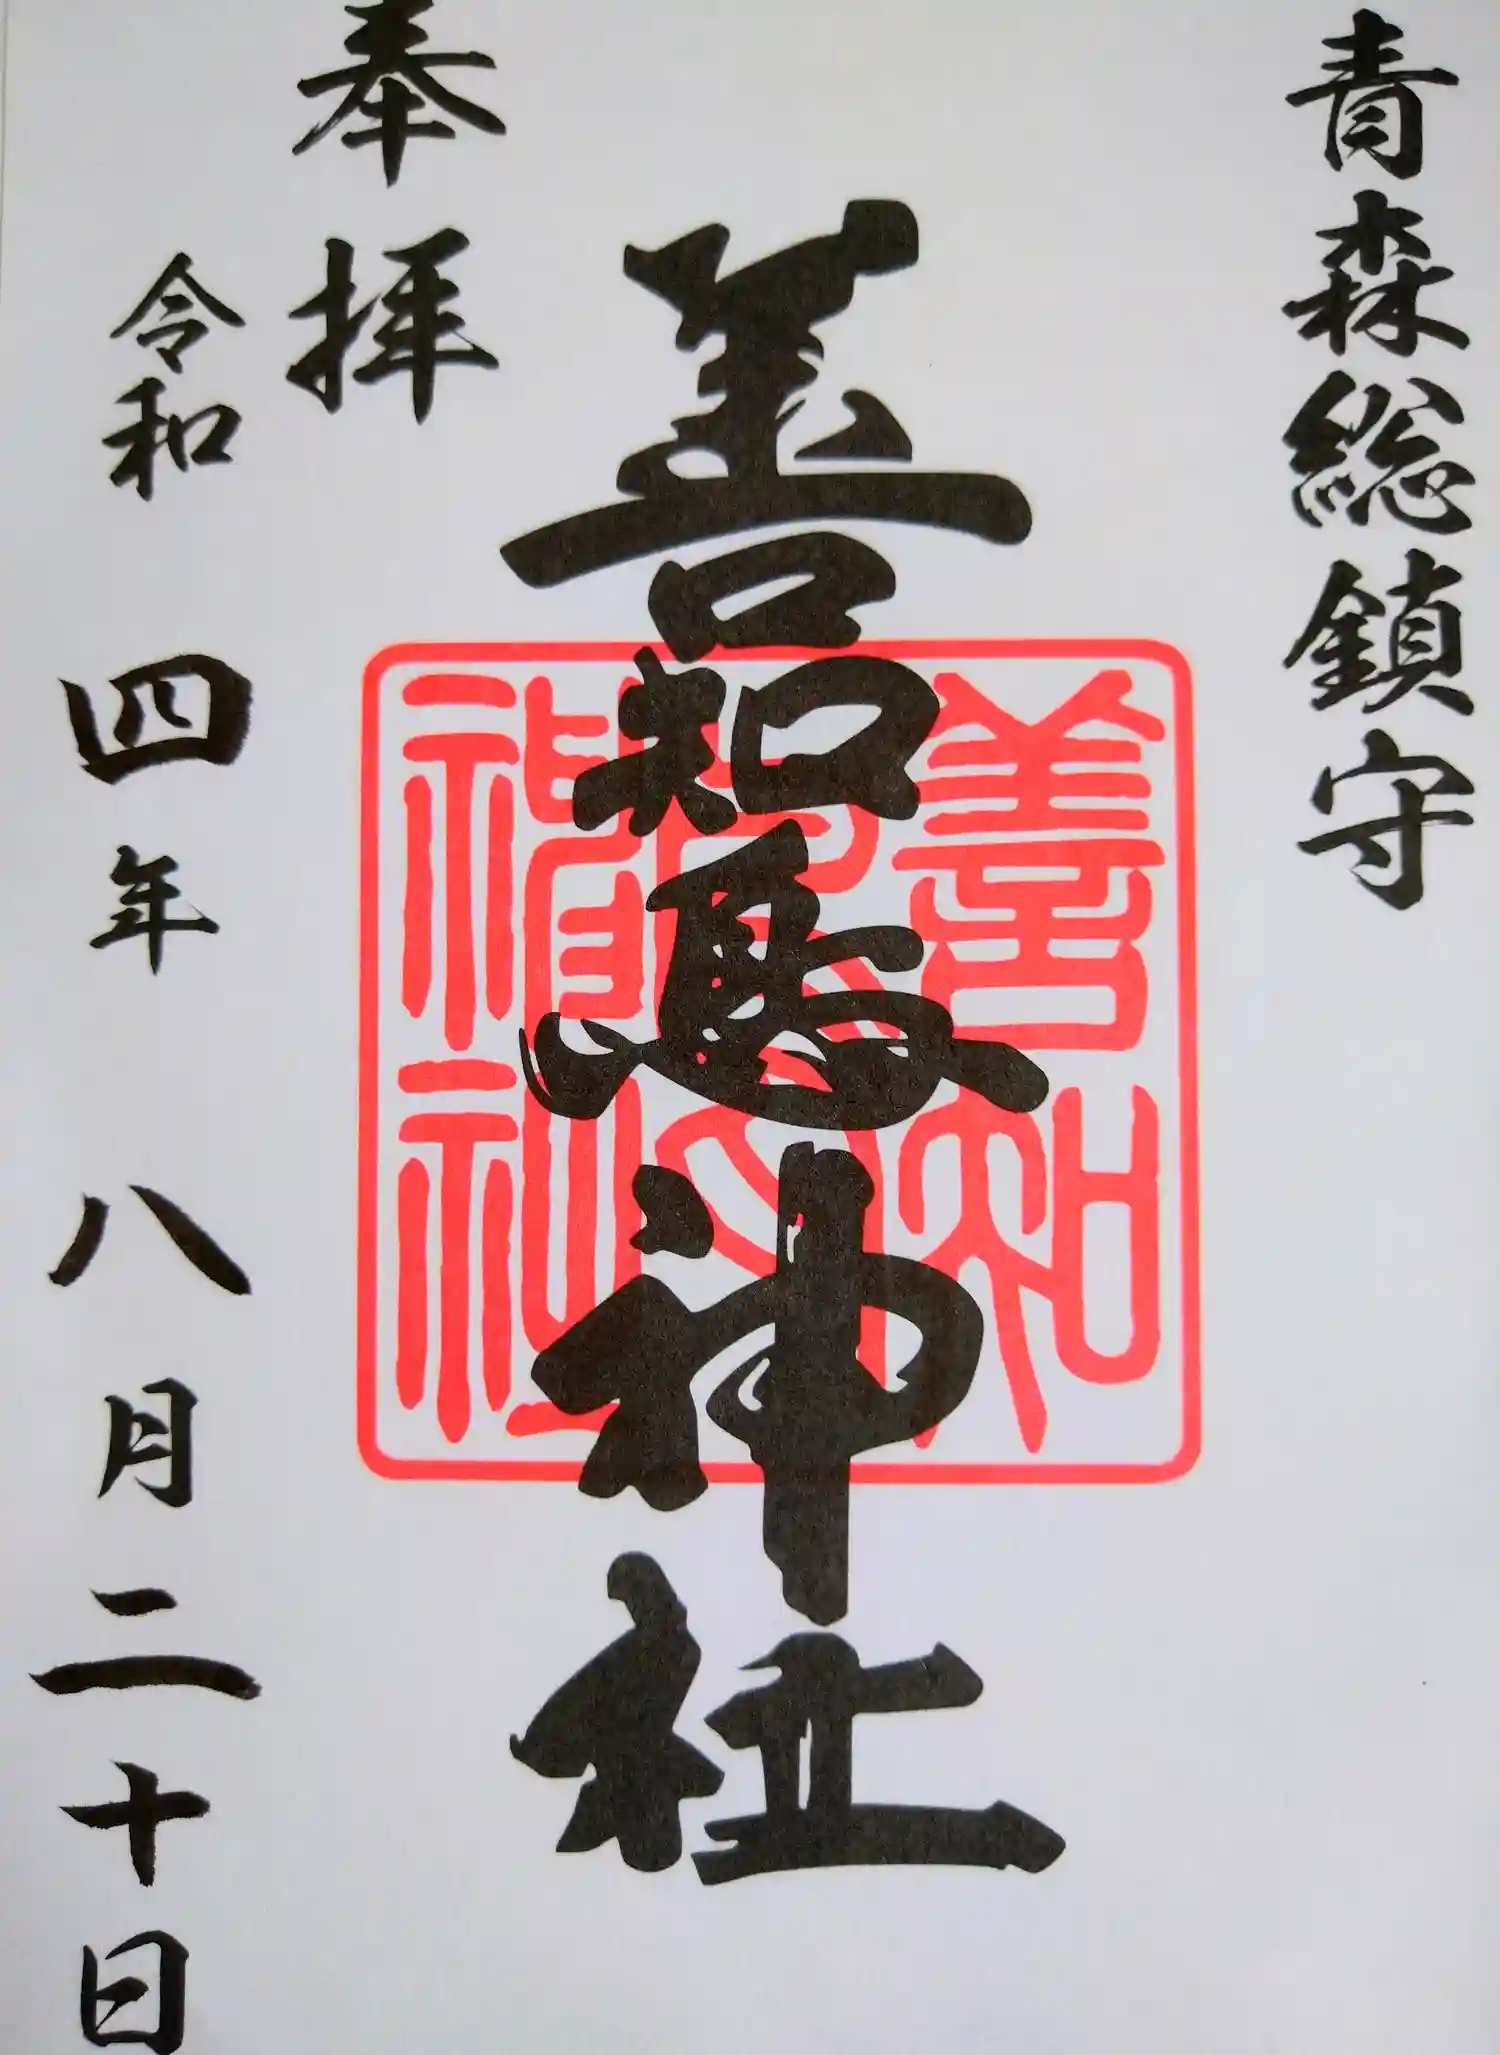 青森総鎮守
善知鳥神社
善知
鳥
神社
奉拝
令和四年八月二十日